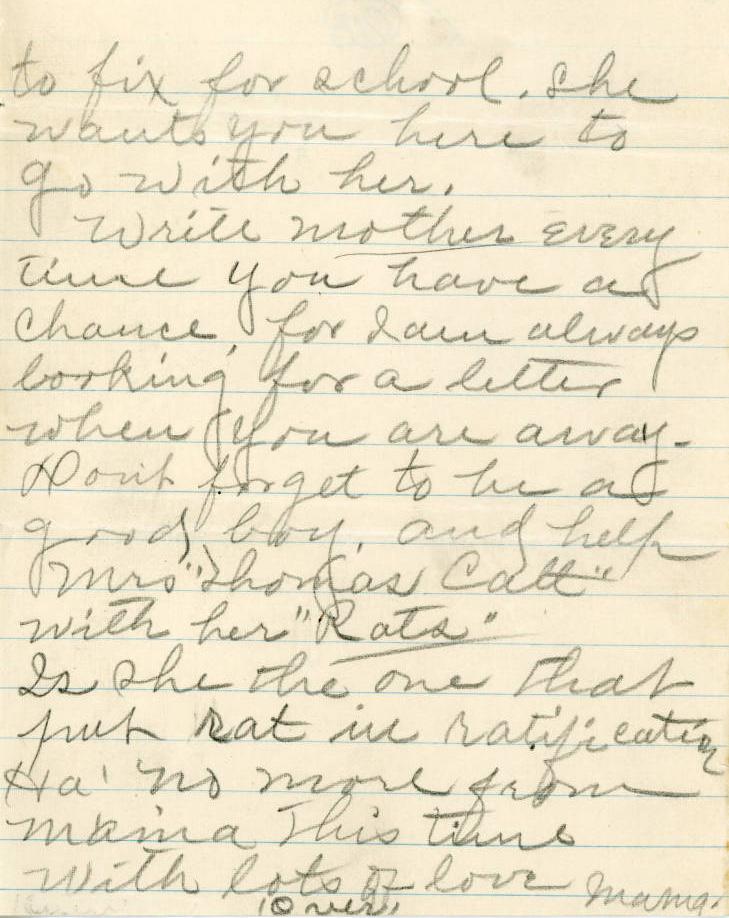 to fix for school. She
wants you here to
go with her.
Write mother every
time you have a
chance, for I am always
looking for a letter
when you are away.
Don't forget to be a
good boy, and help
Mrs "Thomas Catt"
with her "Rats"
Is she the one that
put rat in ratification
Ha! No more from
mama This time
With lots of love Mama.
over